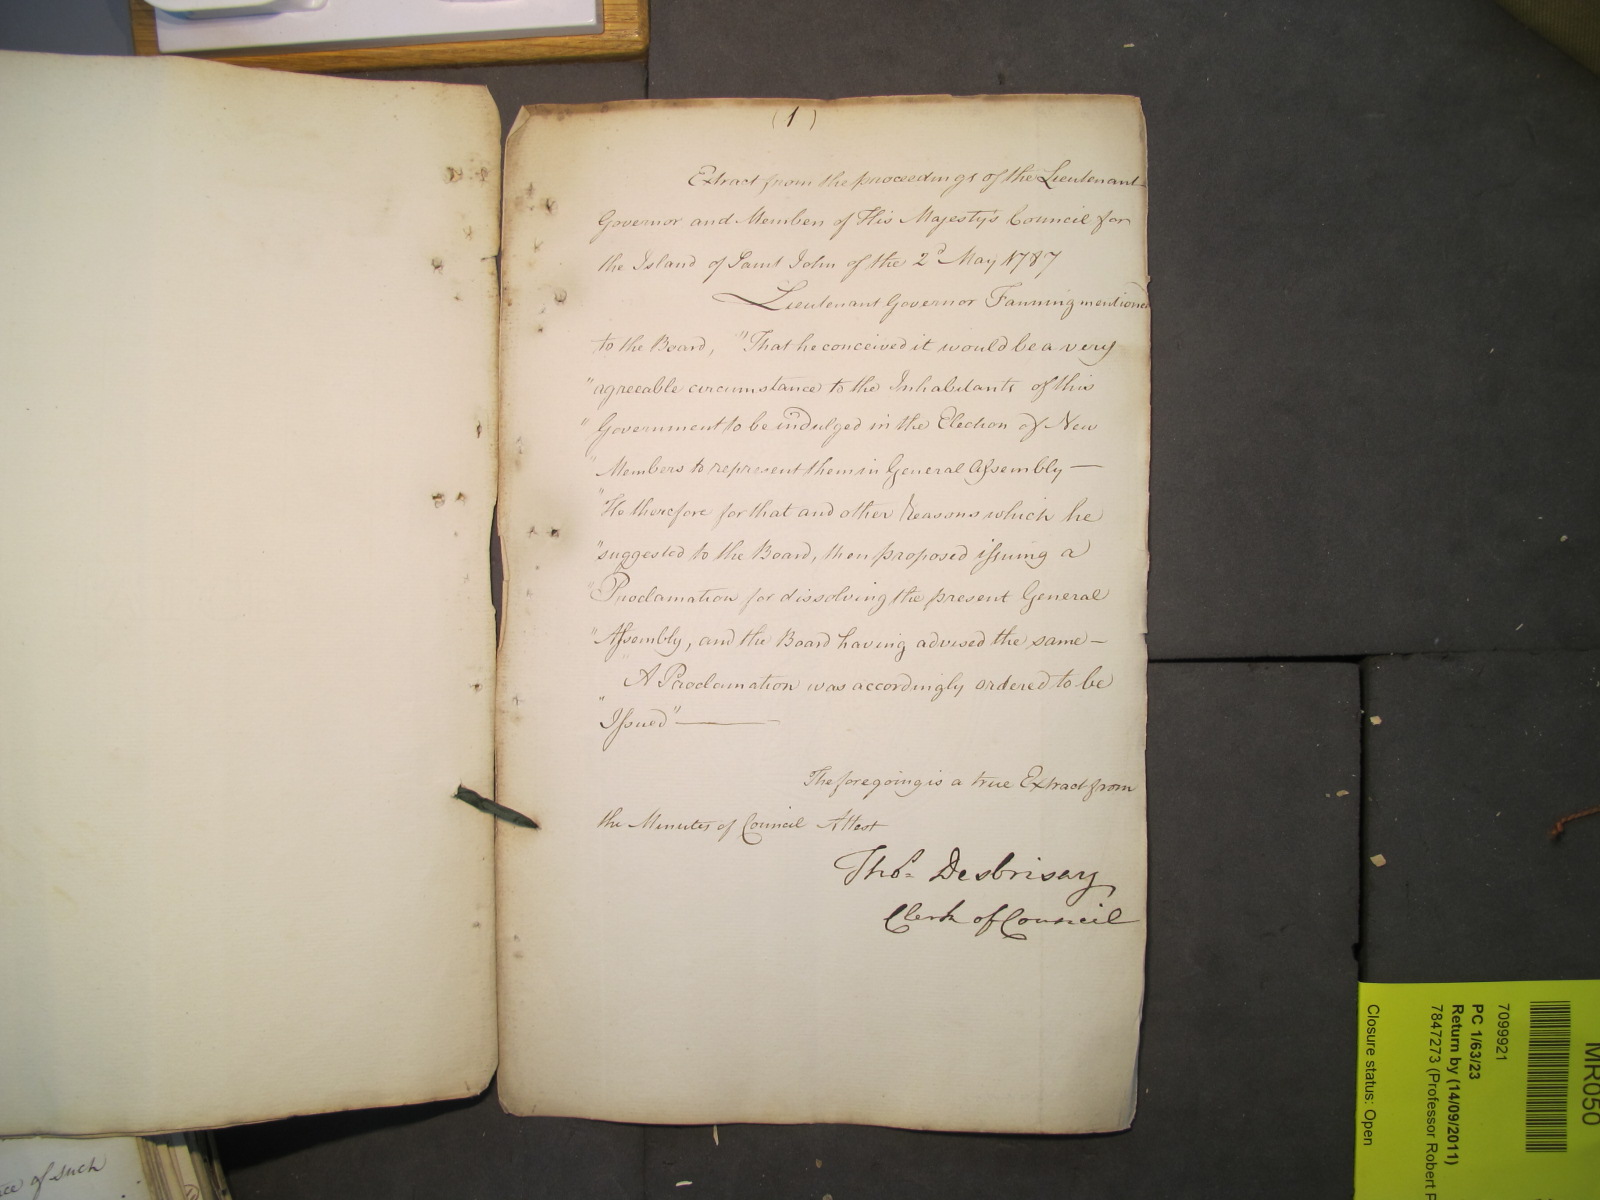 (1)
Extract from the proceedings of the Lieutenant
Governor and Members of His Majesty's Council for
the Island of Saint John of the 2d May 1787
Lieutenant Governor Fanning mentioned
to the Board, "That he conceived it would be a very
"agreeable circumstance to the Inhabitants of this
"Government to be indulged in the Election of New
"Members to represent them in General Assembly —
"He therefore for that and other Reasons which he
"suggested to the Board, then proposed issuing a
"Proclamation for dissolving the present General
"Assembly, and the Board having advised the same —
"A Proclamation was accordingly ordered to be
"Issued" —
The foregoing is a true Extract from
the Minutes of Council Attest
Thos. Desbrisay
Clerk of Council
of such
MR050
7099921
PC 1/63/23
Return by (14/09/2011)
7847273 (Professor Robert
Closure status: Open